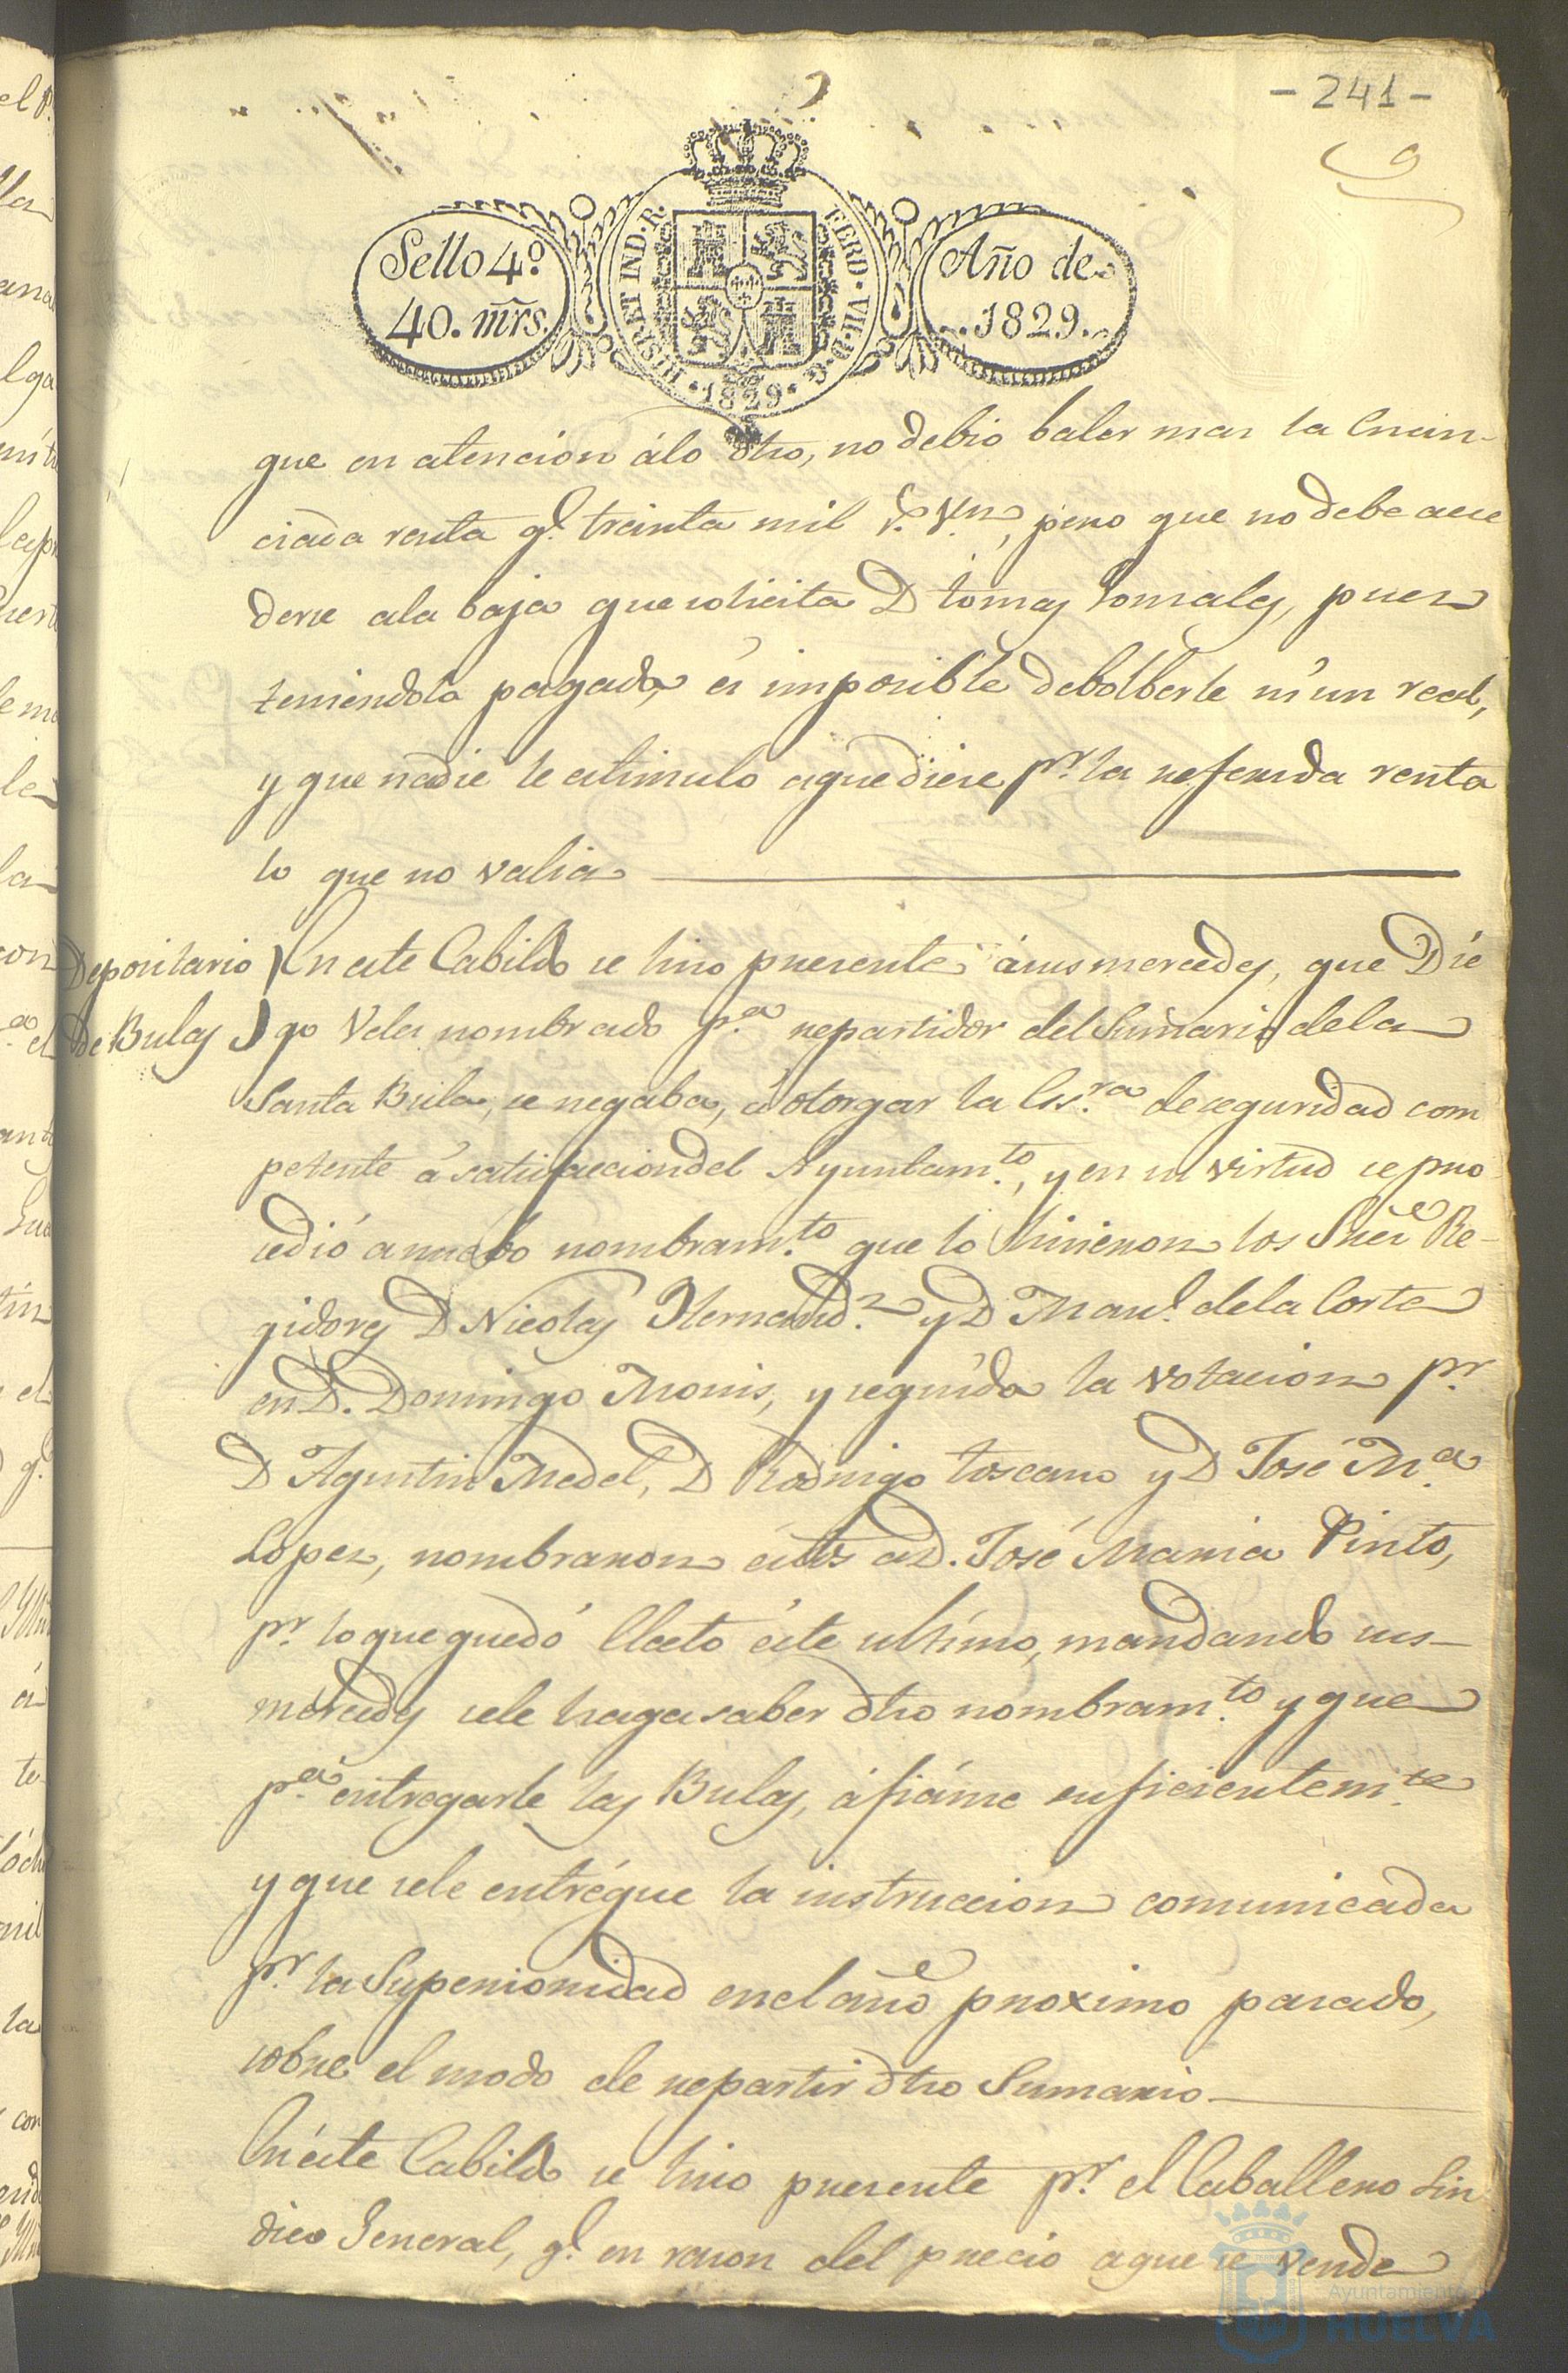 - 241 -
9
Sello 4º
40. mrs.
HISP. ET IND. R. FERD. VII. D. G.
1829
Año de
1829.
que en atencion álo dho, no debió baler mas la Enun-
ciada renta q.e treinta mil r.s v.n, pero que no debe acce
derse ala baja que solicita D Tomas Gonzales, pues
teniendola pagada, és imposible debolberle ni un real,
y que nadie le estimulo aque diese p.r la referida renta
lo que no valia
Depositario
de Bulas
En este Cabildo se hizo presente ásus mercedes, que Die
go Veles nombrado p.a repartidor del Sumario dela
Santa Bula, se negaba, á otorgar la Es.ra de seguridad com
petente á satisfaccion del Ayuntam.to, y en su virtud se pro
cedió anuebo nombram.to que lo hicieron los Sres Re-
gidores D Nicolas Hernand.z y D Man.l dela Corte
en D. Domingo Monis, y seguida la votacion p.r
D Agustin Medel, D Rodrigo Toscano y D José M.a
Lopez, nombraron éstos a D. José Maria Pinto,
p.r lo que quedó Elceto éste ultimo, mandando sus-
mercedes sele haga saber dho nombram.to y que
p.a entregarle las Bulas, áfiánse suficientem.te
y que sele entrégue la instruccion comunicada
p.r la Superioridad enel año proximo pasado,
sobre el modo de repartir dho Sumario
En éste Cabildo se hizo presente p.r el Caballero Sin
dico General, q.e en razon del precio aque se vende
Ayuntamiento de
HUELVA